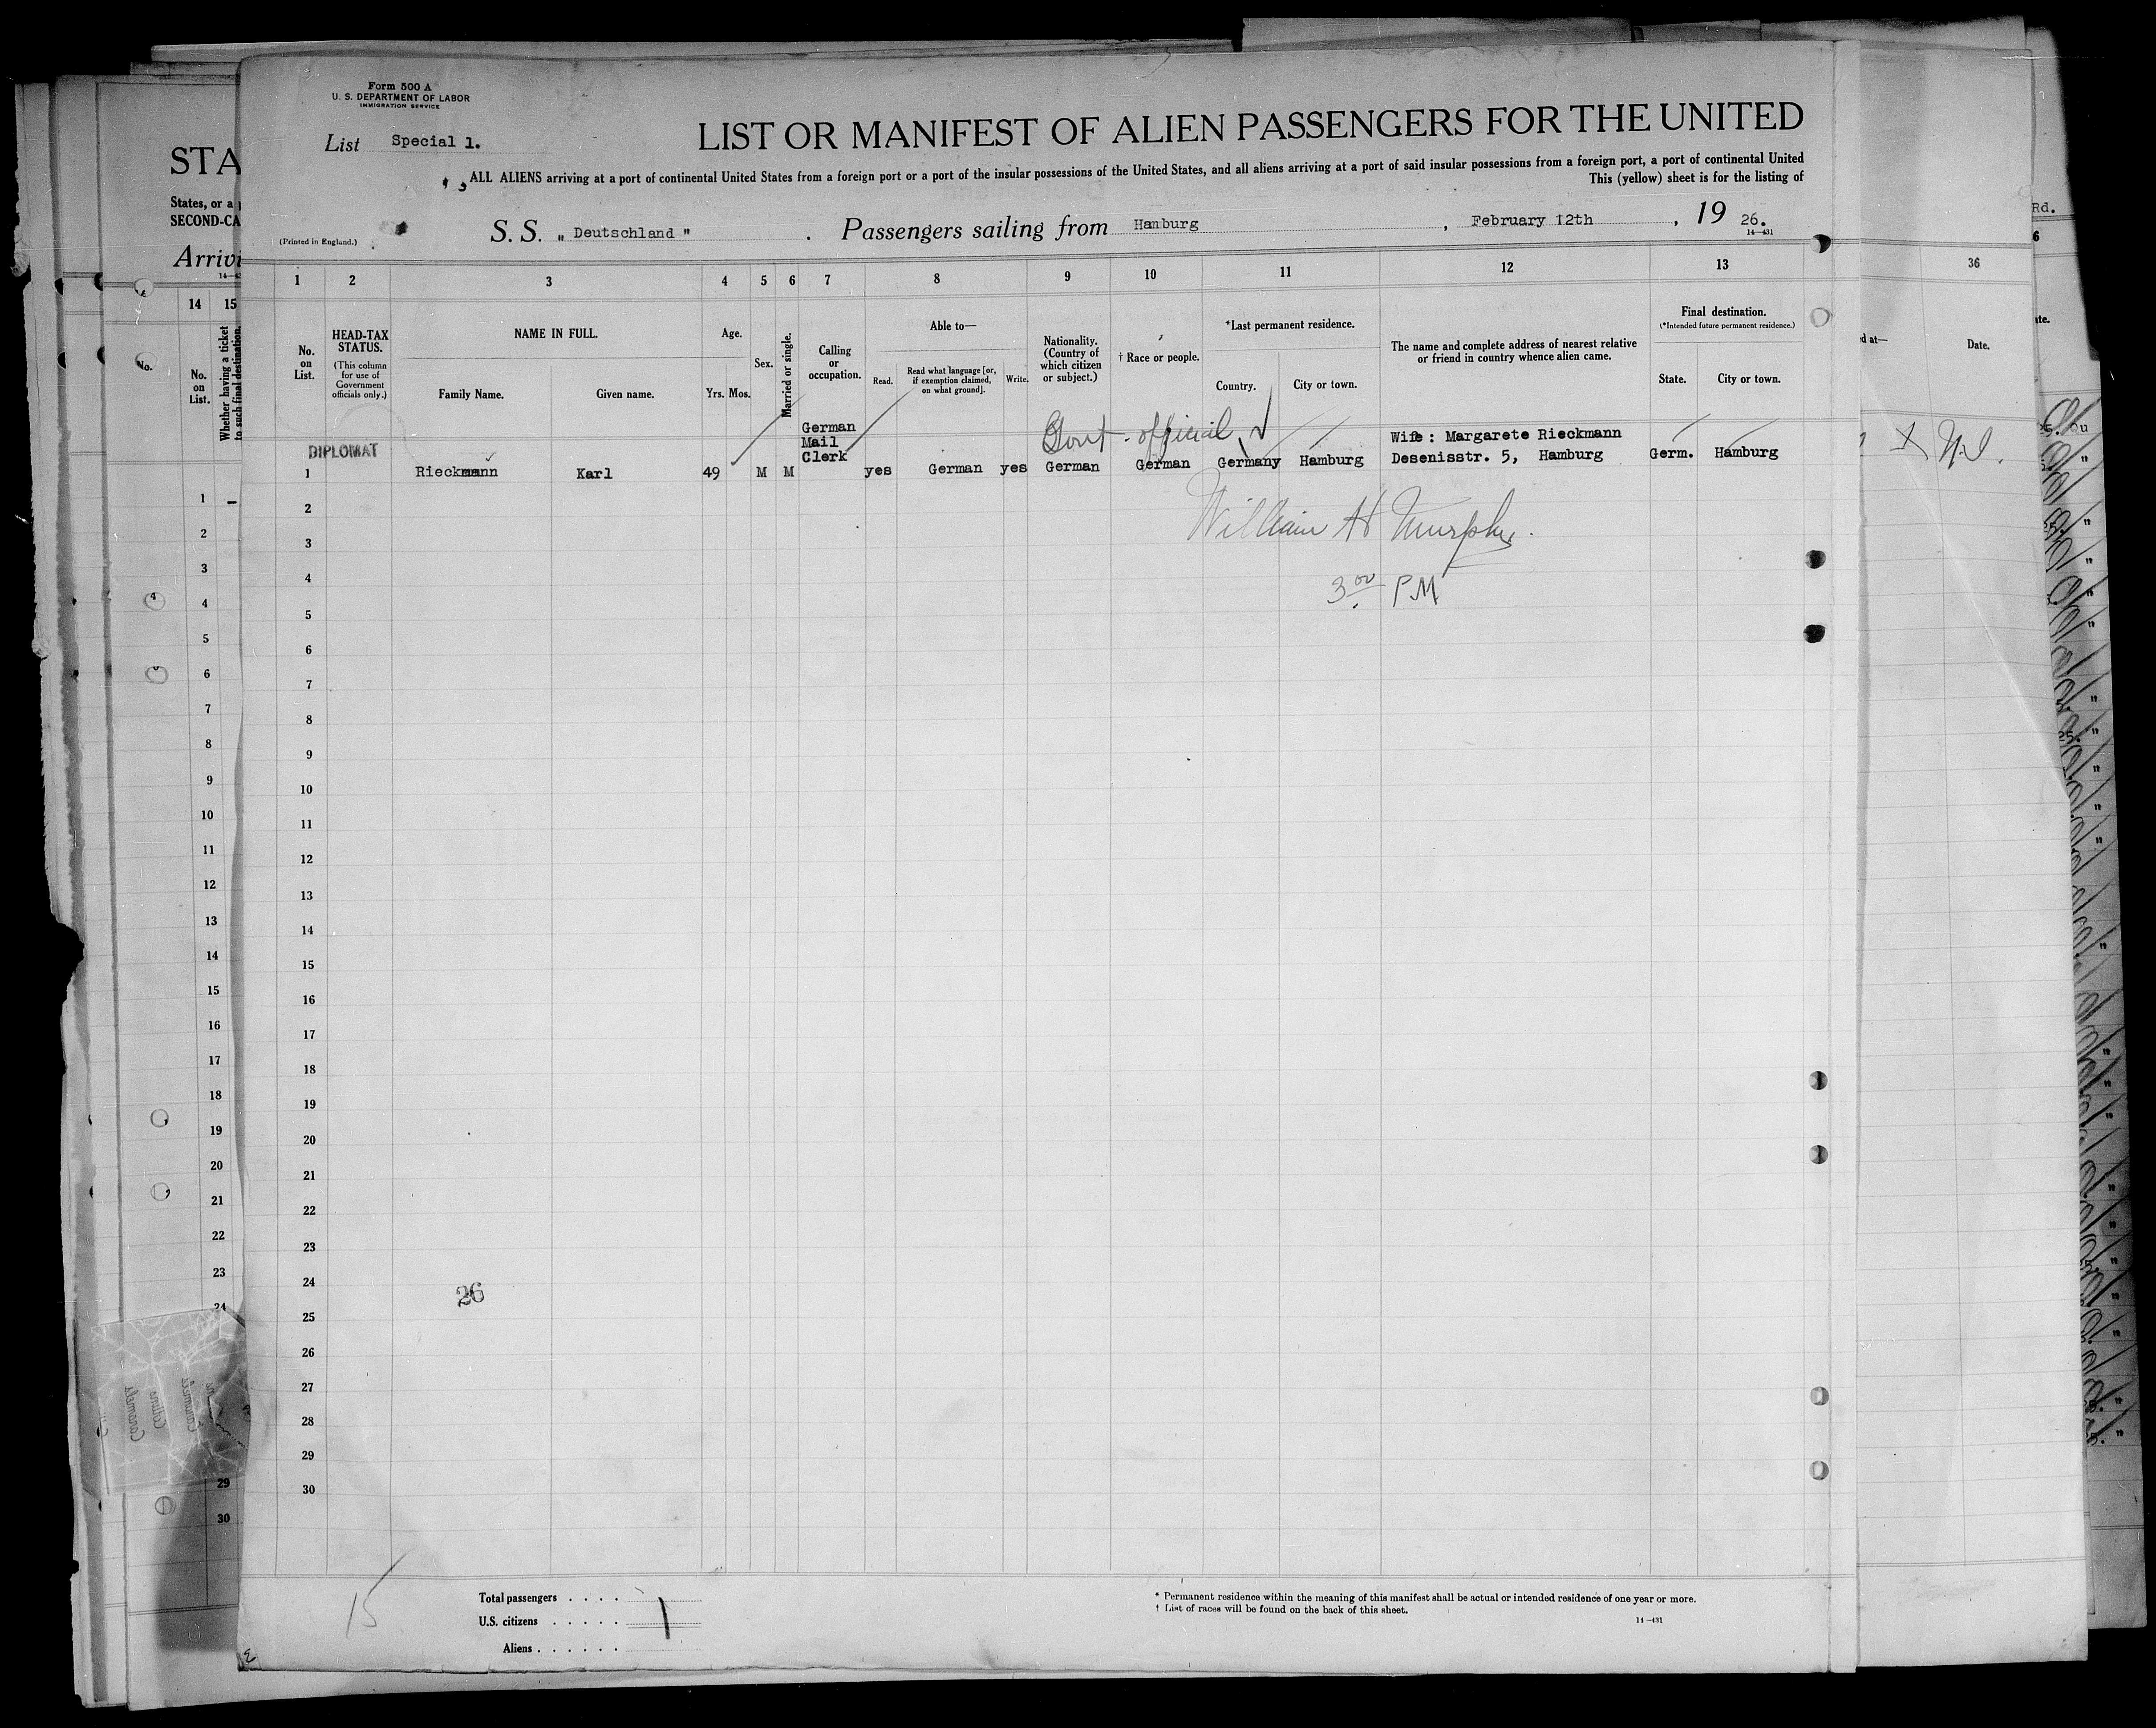 Form 500 A
U. S. DEPARTMENT OF LABOR
IMMIGRATION SERVICE
List Special 1.
LIST OR MANIFEST OF ALIEN PASSENGERS FOR THE UNITED
ALL ALIENS arriving at a port of continental United States from a foreign port or a port of the insular possessions of the United States, and all aliens arriving at a port of said insular possessions from a foreign port, a port of continental United
This (yellow) sheet is for the listing of
(Printed in England.)
S. S. „ Deutschland " . Passengers sailing from Hamburg , February 12th , 19 26.
14—431
1 2 3 4 5 6 7 8 9 10 11 12 13
No. on List.
HEAD-TAX STATUS.
(This column for use of Government officials only.)
NAME IN FULL.
Family Name.
Given name.
Age.
Yrs. Mos.
Sex.
Married or single.
Calling or occupation.
Able to—
Read.
Read what language [or, if exemption claimed, on what ground].
Write.
Nationality. (Country of which citizen or subject.)
† Race or people.
*Last permanent residence.
Country.
City or town.
The name and complete address of nearest relative or friend in country whence alien came.
Final destination.
(*Intended future permanent residence.)
State.
City or town.
Govt. official
DIPLOMAT
1 Rieckmann Karl 49 M M German Mail Clerk yes German yes German German Germany Hamburg Wife : Margarete Rieckmann Desenisstr. 5, Hamburg Germ. Hamburg
William H Murphy.
3 00 PM
2
3
4
5
6
7
8
9
10
11
12
13
14
15
16
17
18
19
20
21
22
23
24
26
25
26
27
28
29
30
15
Total passengers . . . .
U.S. citizens . . . . .
1
Aliens . . . . . .
* Permanent residence within the meaning of this manifest shall be actual or intended residence of one year or more.
† List of races will be found on the back of this sheet.
14—431
STA
States, or a
SECOND-CA
Arrivi
14 15
No. on List.
Whether having a ticket to such final destination.
1
2
3
4
5
6
7
8
9
10
11
12
13
14
15
16
17
18
19
20
21
22
23
24
29
30
36
Date.